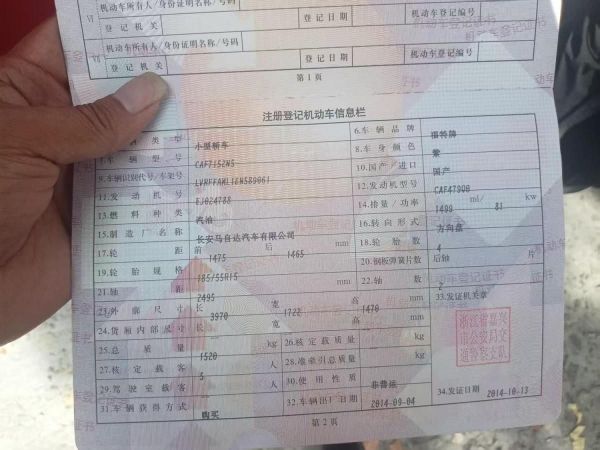 机动车所有人/身份证明名称/号码
Ⅵ 登记机关 登记日期 机动车登记编号
机动车所有人/身份证明名称/号码
登记机关 登记日期 机动车登记编号
第1页
注册登记机动车信息栏
类型 小型轿车 6.车辆品牌 福特牌
7.车辆型号 CAF7152N5 8.车身颜色 紫
9.车辆识别代号/车架号 10.国产/进口 国产
11.发动机号 EJ024788 12.发动机型号 CAF479Q0
13.燃料种类 汽油 14.排量/功率 1499 ml/ 81 kw
15.制造厂名称 长安马自达汽车有限公司 16.转向形式 方向盘
17.轮距 前 1475 后 1465 mm 18.轮胎数 4
19.轮胎规格 185/55R15 20.钢板弹簧片数 后轴 片
21.轴距 2495 mm 22.轴数 2
23.外廓尺寸 长 3970 宽 1722 高 1470 mm 33.发证机关章
24.货厢内部尺寸 长 宽 高 mm
25.总质量 1520 kg 26.核定载质量 kg
27.核定载客 5 人 28.准牵引总质量 kg
29.驾驶室载客 人 30.使用性质 非营运
31.车辆获得方式 购买 32.车辆出厂日期 2014-09-04 34.发证日期 2014-10-13
浙江省嘉兴
市公安局交
通警察支队
第2页